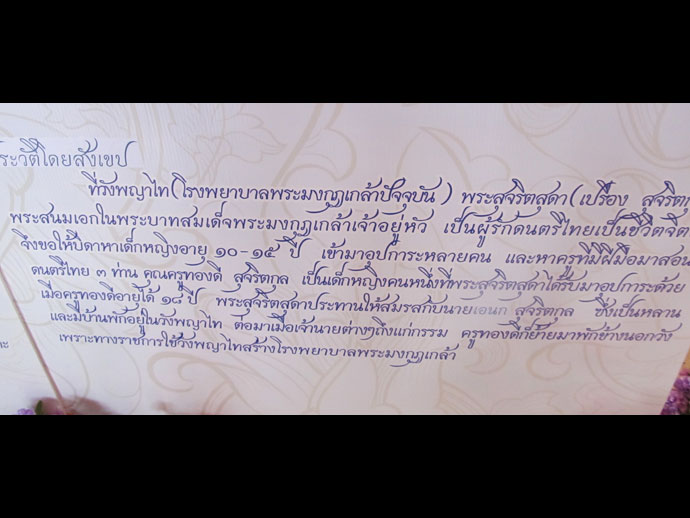 ระวัติโดยสังเขป
ที่วังพญาไท(โรงพยาบาลพระมงกุฎเกล้าปัจจุบัน ) พระสุจริตสุดา(เปรื่อง สุจริตกุ
พระสนมเอกในพระบาทสมเด็จพระมงกุฎเกล้าเจ้าอยู่หัว เป็นผู้รักดนตรีไทยเป็นชีวิตจิต
จึงขอให้บิดาหาเด็กหญิงอายุ ๑๐-๑๕ ปี เข้ามาอุปการะหลายคน และหาครูที่มีฝีมือมาสอน
ดนตรีไทย ๓ ท่าน คุณครูทองดี สุจริตกุล เป็นเด็กหญิงคนหนึ่งที่พระสุจริตสุดาได้รับมาอุปการะด้วย
เมื่อครูทองดีอายุได้ ๑๘ ปี พระสุจริตสุดาประทานให้สมรสกับนายเอนก สุจริตกุล ซึ่งเป็นหลาน
และมีบ้านพักอยู่ในวังพญาไท ต่อมาเมื่อเจ้านายต่างๆถึงแก่กรรม ครูทองดีก็ย้ายมาพักข้างนอกวัง
เพราะทางราชการใช้วังพญาไทสร้างโรงพยาบาลพระมงกุฎเกล้า